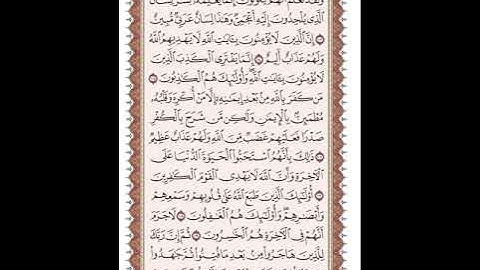 ولقد نعلم أنهم يقولون إنما يعلمه بشر لسان
الذي يلحدون إليه أعجمي وهذا لسان عربي مبين
إن الذين لا يؤمنون بآيات الله لا يهديهم الله
ولهم عذاب أليم إنما يفتري الكذب الذين
لا يؤمنون بآيات الله وأولئك هم الكاذبون
من كفر بالله من بعد إيمانه إلا من أكره وقلبه
مطمئن بالإيمان ولكن من شرح بالكفر
صدرا فعليهم غضب من الله ولهم عذاب عظيم
ذلك بأنهم استحبوا الحياة الدنيا على
الآخرة وأن الله لا يهدي القوم الكافرين
أولئك الذين طبع الله على قلوبهم وسمعهم
وأبصارهم وأولئك هم الغافلون لا جرم
أنهم في الآخرة هم الخاسرون ثم إن ربك
للذين هاجروا من بعد ما فتنوا ثم جاهدوا